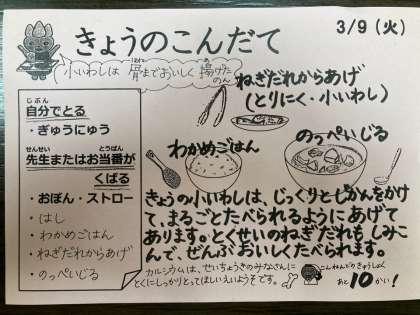 きょうのこんだて
3/9(火)
小いわしは 骨までおいしく 揚げた
のん
ねぎだれからあげ
(とりにく・小いわし)
じぶん
自分でとる
・ぎゅうにゅう
せんせい とうばん
先生またはお当番が
くばる
・おぼん・ストロー
・はし
・わかめごはん
・ねぎだれからあげ
・のっぺいじる
わかめごはん
のっぺいじる
きょうの小いわしは、じっくりとじかんをかけ
て、まるごとたべられるようにあげて
あります。とくせいのねぎだれもしみこ
んで、ぜんぶおいしくたべられます。
カルシウムは、せいちょうきのみなさんに
とくにしっかりとってほしいえいようそです。
こんねんどのきゅうしょく
あと10かい!